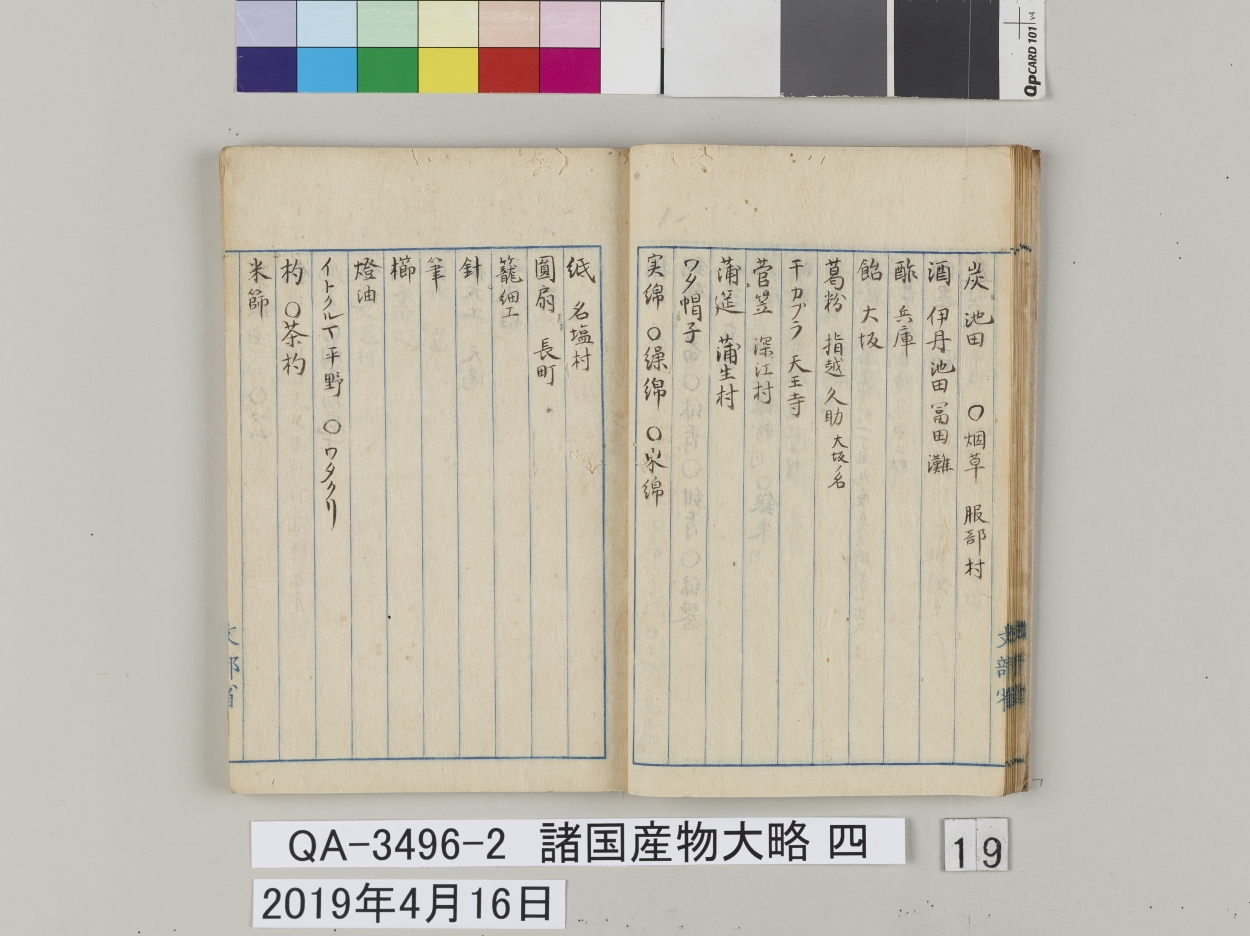 QPCARD 101 v4
炭 池田 〇烟草 服部村
酒 伊丹池田冨田灘
酢 兵庫
飴 大坂
葛粉 指越 久助 大坂名
干カブラ 天王寺
菅笠 深江村
蒲莚 蒲生村
ワタ帽子
実綿 〇繰綿 〇氷綿
文部省
紙 名塩村
圓扇 長町
籠細工
針
筆
櫛
燈油
イトクルマ 平野 〇ワタクリ
杓 〇茶杓
米篩
文部省
QA-3496-2 諸国産物大略 四
19
2019年4月16日